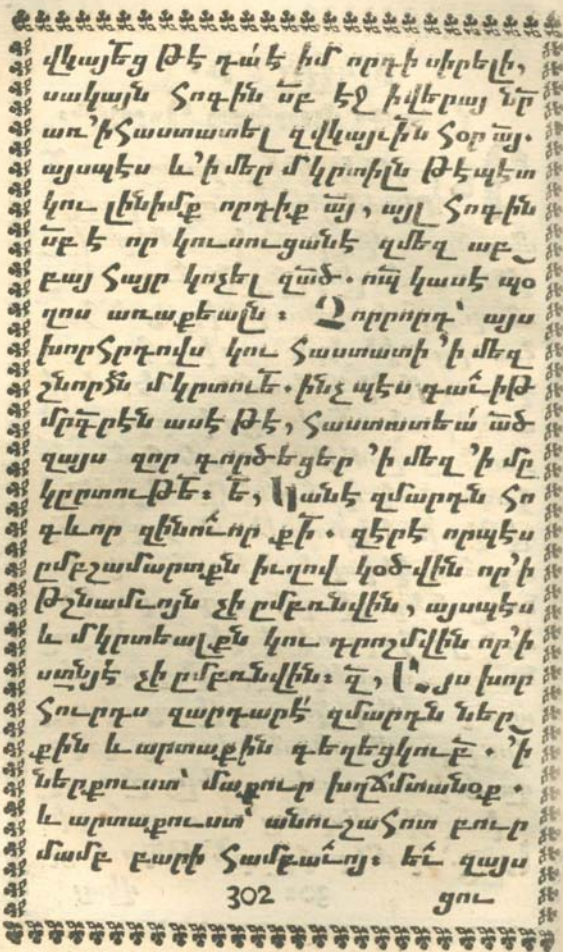 վկայեց թէ դա՛ է իմ որդի սիրելի,
սակայն հոգին ս՟բ էջ իվերայ նր՟
առ ՚ի հաստատել զվկայւի՟ն հօր ա՟յ.
այսպէս և ՚ի մեր մկրտիլն թէպէտ
կու լինիմք որդիք ա՟յ, այլ հոգին
ս՟բ է որ կուսուցանէ զմեզ աբ
բայ հայր կոչել զա՟ծ. ոպ՟ կասէ պօ
ղոս առաքեալն։ Չորրորդ՝ այս
խորհրդովս կու հաստատի ՚ի մեզ
շնորհն մկրտուե՟. ինչպէս դաւիթ
մրգրէն ասէ թէ, հաստատեա՛ ա՟ծ
զայս զոր գործեցեր ՚ի մեզ ՚ի մը
կըրտութե՟։ ե՟, Առանէ զմարդն հո
գևոր զինուոր քի՟. զէրէ որպէս
ըմբշամարտքն իւղով կօծվին որ ՚ի
թշնամւոյն չի ըմբռնվին, այսպէս
և մկրտեալքն կու դրոշմվին որ ՚ի
ստնյէ չի ըմբռնվին։ զ՟, Այս խոր
հուրդս զարդարէ՛ զմարդն ներ
քին և արտաքին գեղեցկուբ՟. ՚ի
ներքուստ՝ մաքուր խղճմտանօք.
և արտաքուստ՝ անուշահոտ բուր
մամբ բարի համբաւոյ։ եւ զայս
302 ցու